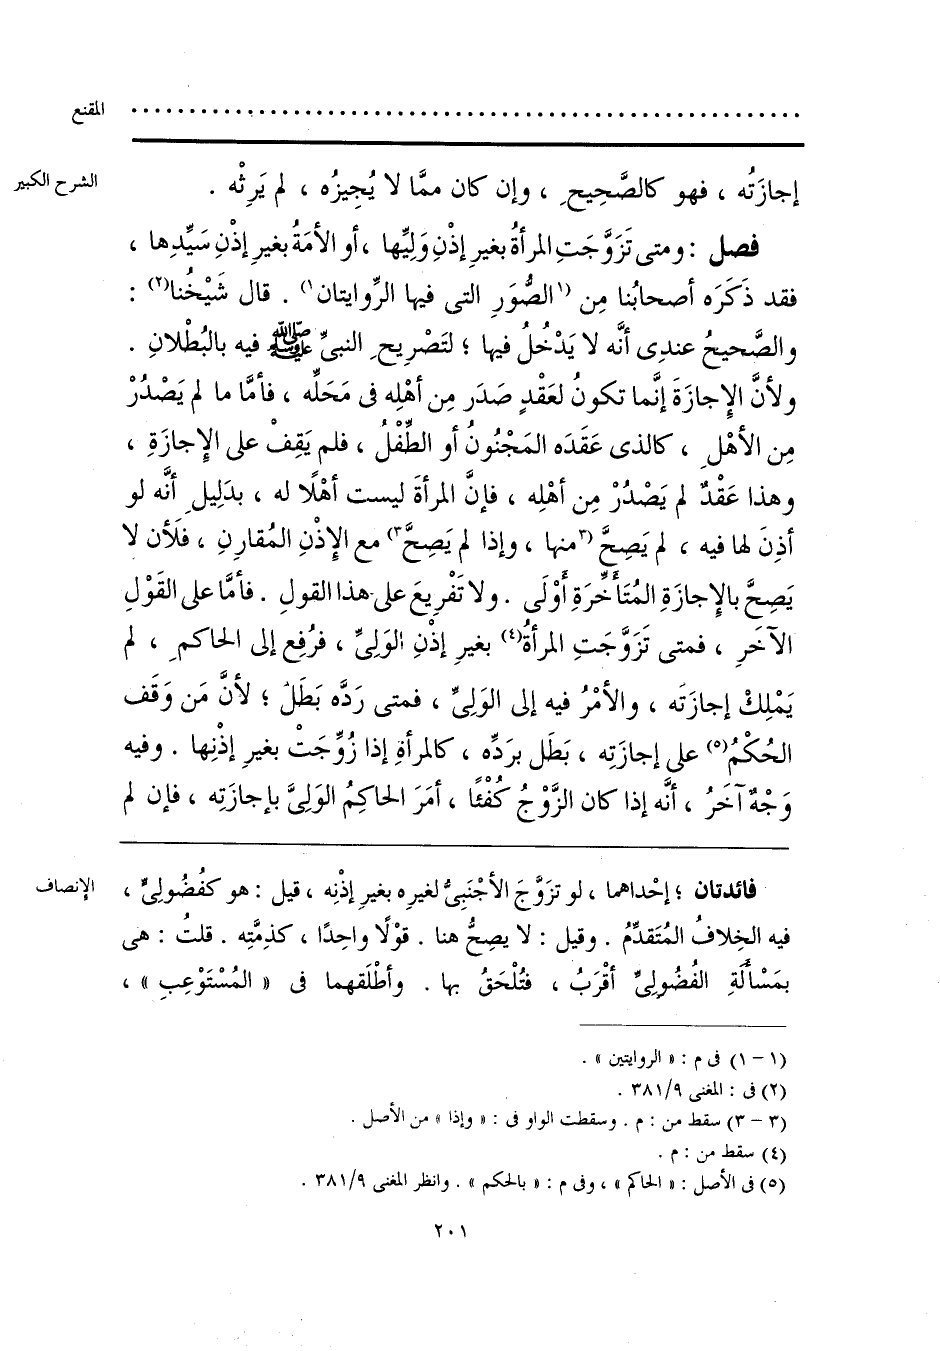 المقنع ........................................................
الشرح الكبير
إجازَتُه ، فهو كالصَّحِيحِ ، وإن كان ممَّا لا يُجِيزُه ، لم يَرِثْه .
فصل : ومتى تَزَوَّجَتِ المرأةُ بغيرِ إذْنِ وَلِيِّها ، أو الأمَةُ بغيرِ إذْنِ سَيِّدِها ،
فقد ذَكَرَه أصحابُنا مِن (١الصُّوَرِ التى فيها الرِّوايتان١) . قال شَيْخُنا(٢) :
والصَّحيحُ عندِى أنَّه لا يَدْخُلُ فيها ؛ لتَصْرِيحِ النبىِّ ﷺ فيه بالبُطْلانِ .
ولأنَّ الإِجازَةَ إنَّما تكونُ لعَقْدٍ صَدَر مِن أهْلِه فى مَحَلِّه ، فأمَّا ما لم يَصْدُرْ
مِن الأهْلِ ، كالذى عَقَدَه المَجْنُونُ أو الطِّفْلُ ، فلم يَقِفْ على الإِجازَةِ ،
وهذا عَقْدٌ لم يَصْدُرْ مِن أهْلِه ، فإنَّ المرأةَ ليست أهْلًا له ، بدَلِيلِ أنَّه لو
أذِنَ لها فيه ، لم يَصِحَّ (٣منها ، وإذا لم يَصِحَّ٣) مع الإِذْنِ المُقارِنِ ، فلَأن لا
يَصِحَّ بالإِجازَةِ المُتَأخِّرَةِ أَوْلَى . ولا تَفْرِيعَ على هذا القولِ . فأمَّا على القَوْلِ
الآخَرِ ، فمتى تَزَوَّجَتِ المرأةُ(٤) بغيرِ إذْنِ الوَلِىِّ ، فرُفِع إلى الحاكمِ ، لم
يَمْلِكْ إجازَتَه ، والأمْرُ فيه إلى الوَلِىِّ ، فمتى رَدَّه بَطَلَ ؛ لأنَّ مَن وَقَف
الحُكْمُ(٥) على إجازَتِه ، بَطَل برَدِّه ، كالمرأةِ إذا زُوِّجَتْ بغيرِ إذْنِها . وفيه
وَجْهٌ آخَرُ ، أنَّه إذا كان الزَّوْجُ كُفْئًا ، أمَرَ الحاكِمُ الوَلِىَّ بإجازَتِه ، فإن لم
الإنصاف
فائدتان ؛ إحْداهما ، لو تزَوَّجَ الأجْنَبِىُّ لغيرِه بغيرِ إذْنِه ، قيل : هو كفُضُولِىٍّ ،
فيه الخِلافُ المُتَقدِّمُ . وقيل : لا يصِحُّ هنا . قوْلًا واحِدًا ، كذِمَّتِه . قلتُ : هى
بمَسْألَةِ الفُضُولِىِّ أقْرَبُ ، فتُلْحَقُ بها . وأطْلَقَهما فى « المُسْتَوْعِبِ » ،
(١ - ١) فى م : « الروايتين » .
(٢) فى : المغنى ٣٨١/٩ .
(٣ - ٣) سقط من : م . وسقطت الواو فى : « وإذا » من الأصل .
(٤) سقط من : م .
(٥) فى الأصل : « الحاكم » ، وفى م : « بالحكم » . وانظر المغنى ٣٨١/٩ .
٢٠١